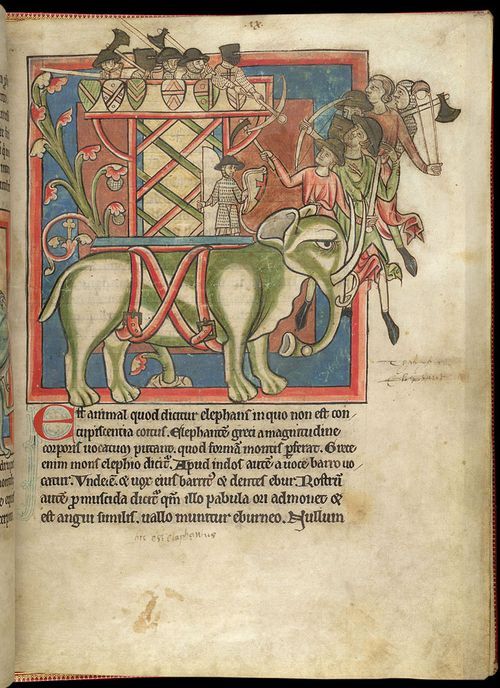 Est animal quod dicitur elephans in quo non est con
cupiscentia coitus. Elephantē greci a magnitudine
corporis uocatum putant. quod formā montis p̄ferat. Grece
enim mons elephio dicit̄. Apud indos autē a uoce barro uo
catur. Unde & uox eius barrit᷒ & dentes ebur. Rostrū
autē pmuscida dicit̄ qm̄ illo pabula ori admouet &
est angui similis. uallo munitur eburneo. Nullum